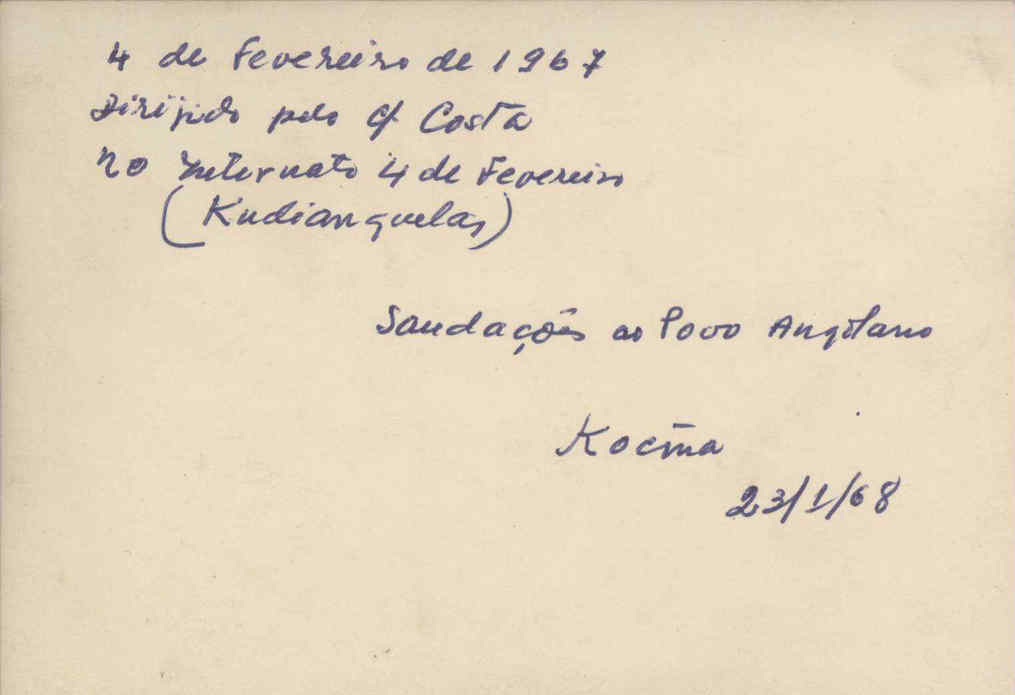 4 de Fevereiro de 1967
Dirijido pelo C/ Costa
no Internato 4 de Fevereiro
(Kudianguelas)
Saudações ao Povo Angolano
23/1/68